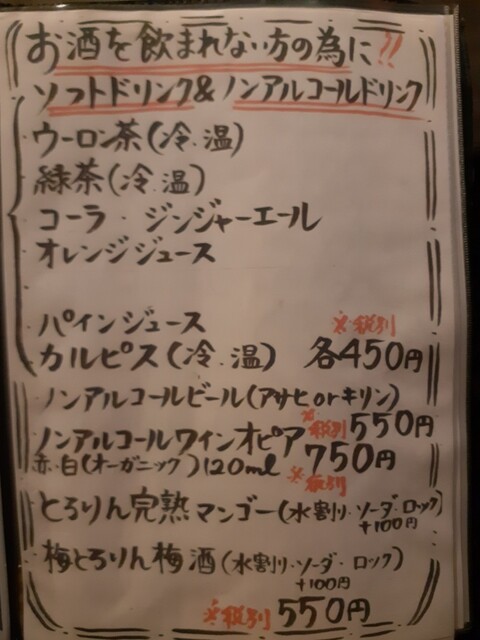 お酒を飲まれない方の為に!!
ソフトドリンク&ノンアルコールドリンク
ウーロン茶(冷.温)
緑茶(冷.温)
コーラ・ジンジャーエール
オレンジジュース
パインジュース ※税別
カルピス(冷.温) 各450円
ノンアルコールビール(アサヒorキリン)
※税別550円
ノンアルコールワインオピア
赤・白(オーガニック)120ml 750円
※税別
とろりん完熟マンゴー(水割り・ソーダ・ロック)
+100円
梅とろりん梅酒(水割り・ソーダ・ロック)
+100円
※税別550円